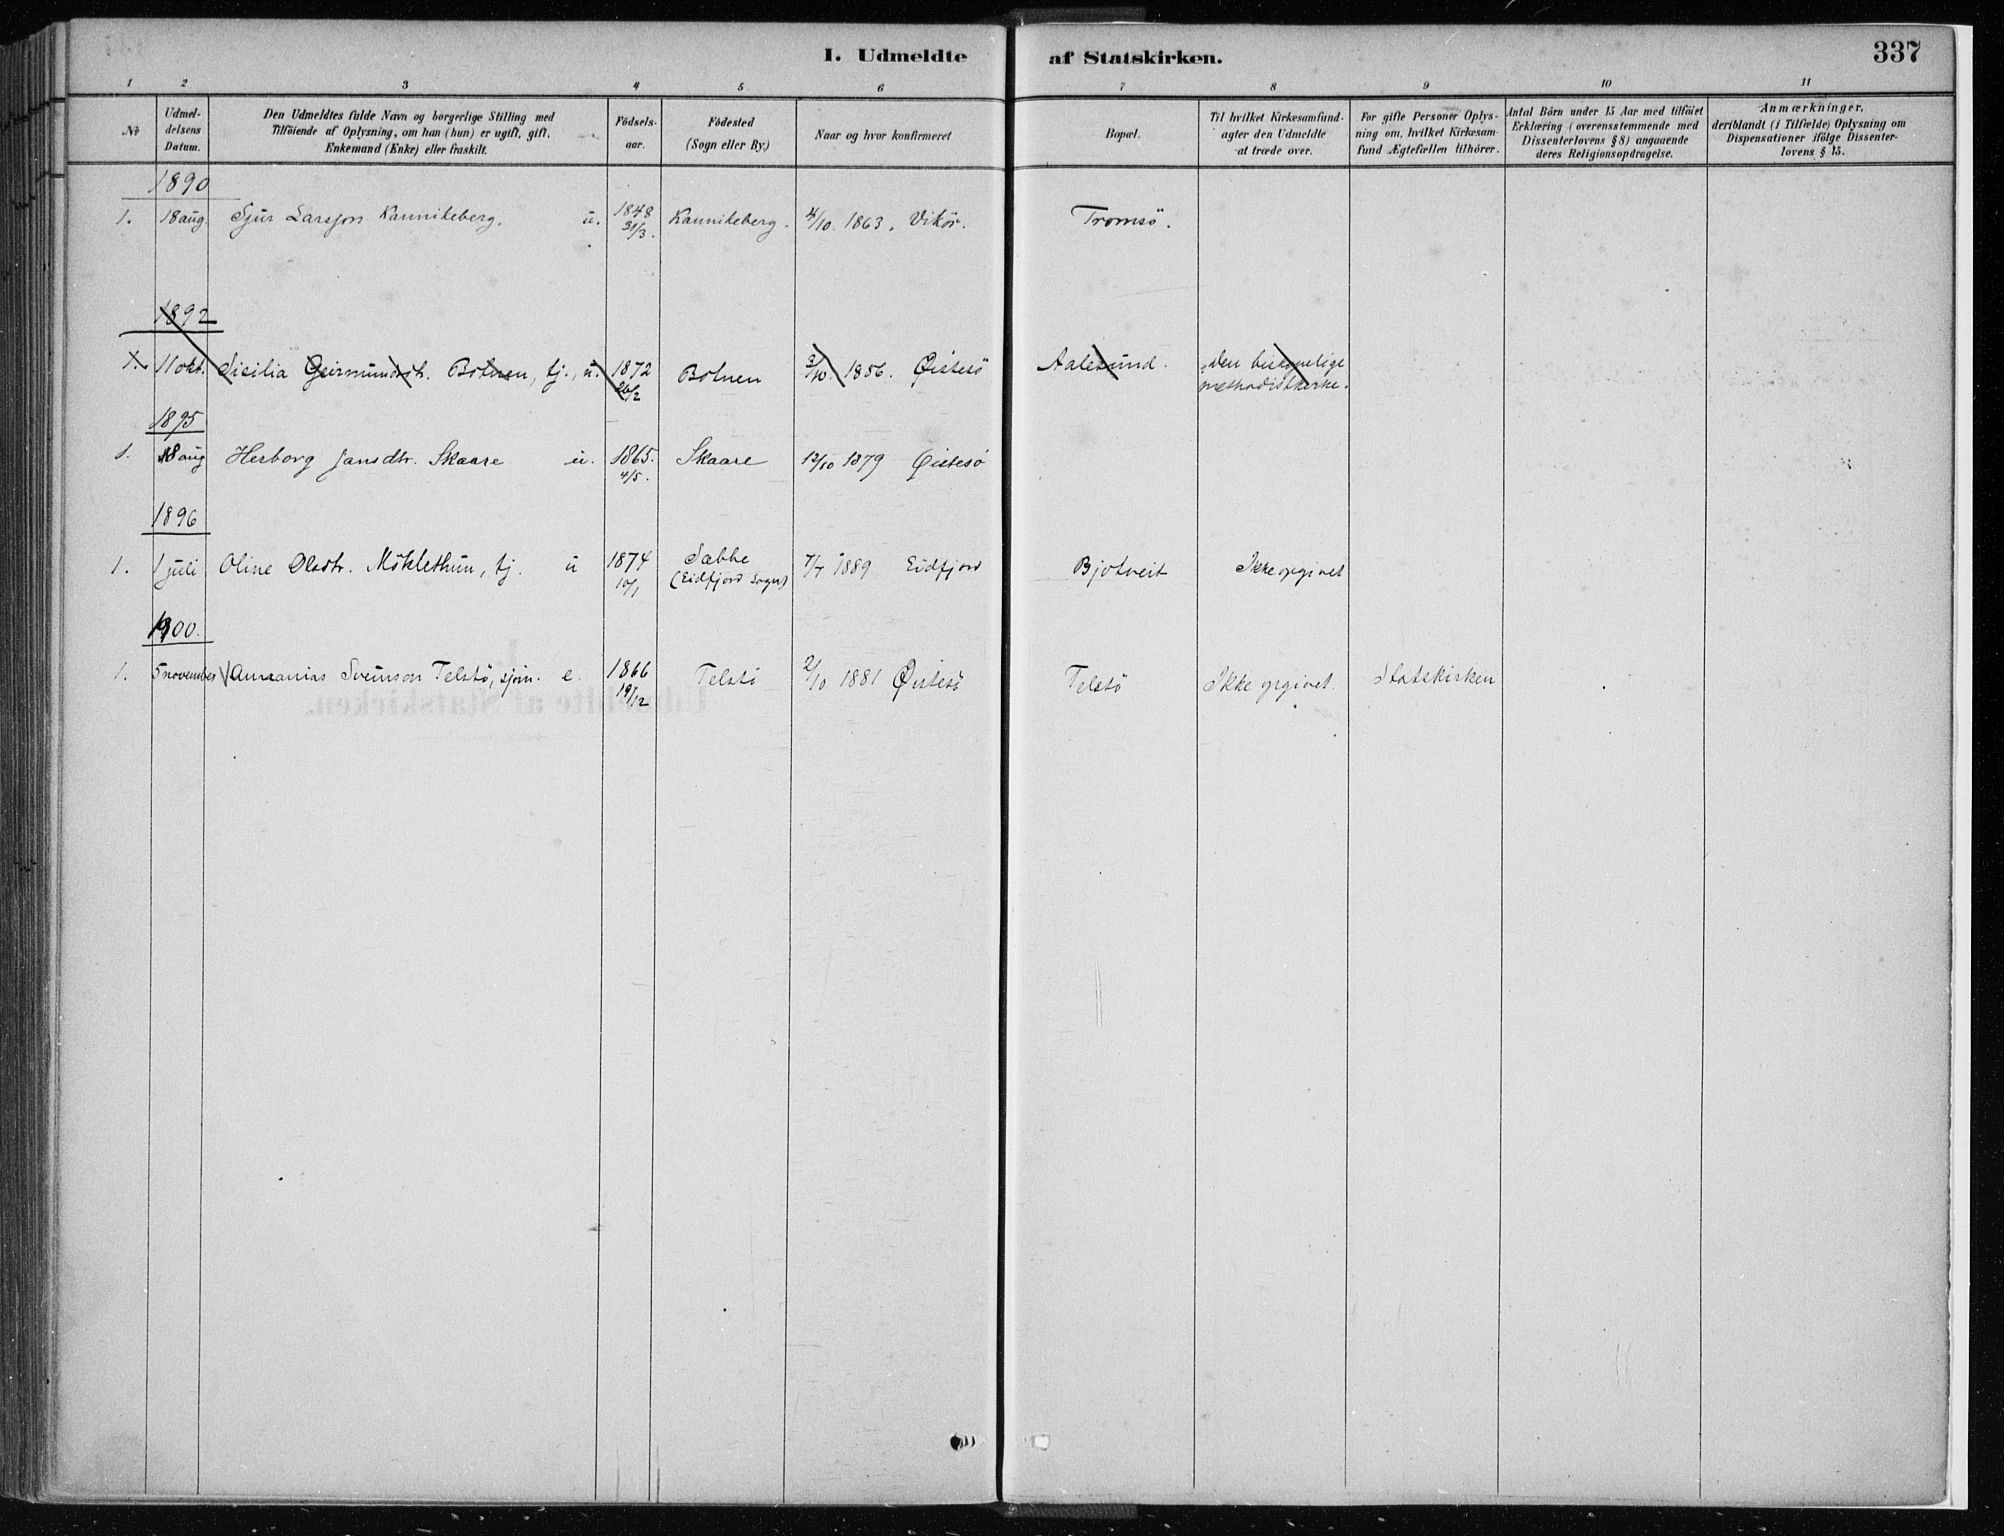 I. Udmeldte af Statskirken. 337
1 2 3 4 5 6 7 8 9 10 11
No
Udmeldelsens Datum.
Den Udmeldtes fulde Navn og borgerlige Stilling med Tilföiende af Oplysning, om han (hun) er ugift, gift, Enkemand (Enke) eller fraskilt.
Födselsaar.
Födested (Sogn eller By)
Naar og hvor konfirmeret
Bopæl.
Til hvilket Kirkesamfund agter den Udmeldte at træde over.
For gifte Personer Oplysning om, hvilket Kirkesamfund Ægtefællen tilhörer.
Antal Börn under 15 Aar med tilföiet Erklæring (overensstemmende med Dissenterlovens § 8) angaaende deres Religionsopdragelse.
Anmærkninger, deriblandt (i Tilfælde) Oplysning om Dispensationer ifölge Dissenterlovens § 15.
1890
1. 18 aug. Sjur Larsson Kannikeberg. u. 1848 31/3. Kannikeberg. 4/10. 1863. Vikör. Tromsö.
1892
1. 11 okt. Sisilia Geirmundsdt. Botnen, tj., u. 1872 26/2 Botnen 3/10. 1886. Öistesö Aalesund. den biskopelige methodistkirke.
1895
1. 18 aug Herborg Jansdtr. Skaare u. 1865. 4/5. Skaare 12/10 1879 Öistesö
1896
1. 1 juli Oline Olsdtr. Möklethun, tj. u 1874 10/1 Sæbbe (Eidfjord Sogn) 7/7 1889 Eidfjord Bjotveit Ikke opgivet
1900.
1. 5 november Annanias Sveinson Telstö, sjöm. e. 1866 19/12 Telstö 2/10 1881 Öistesö Telstö Ikke opgivet Statskirken